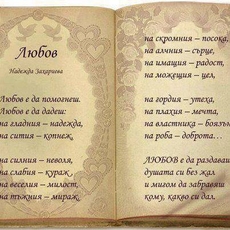 Любов
Надежда Захариева
Любов е да помогнеш.
Любов е да дадеш:
на гладния – надежда,
на сития – копнеж,
на силния – неволя,
на слабия – кураж,
на веселия – милост,
на тъжния – мираж,
на скромния – посока,
на алчния – сърце,
на имащия – радост,
на можещия – цел,
на гордия – утеха,
на плахия – мечта,
на властника – боязън
на роба – доброта...
ЛЮБОВ е да раздаваш
душата си без жал
и мигом да забравяш
кому, какво си дал.